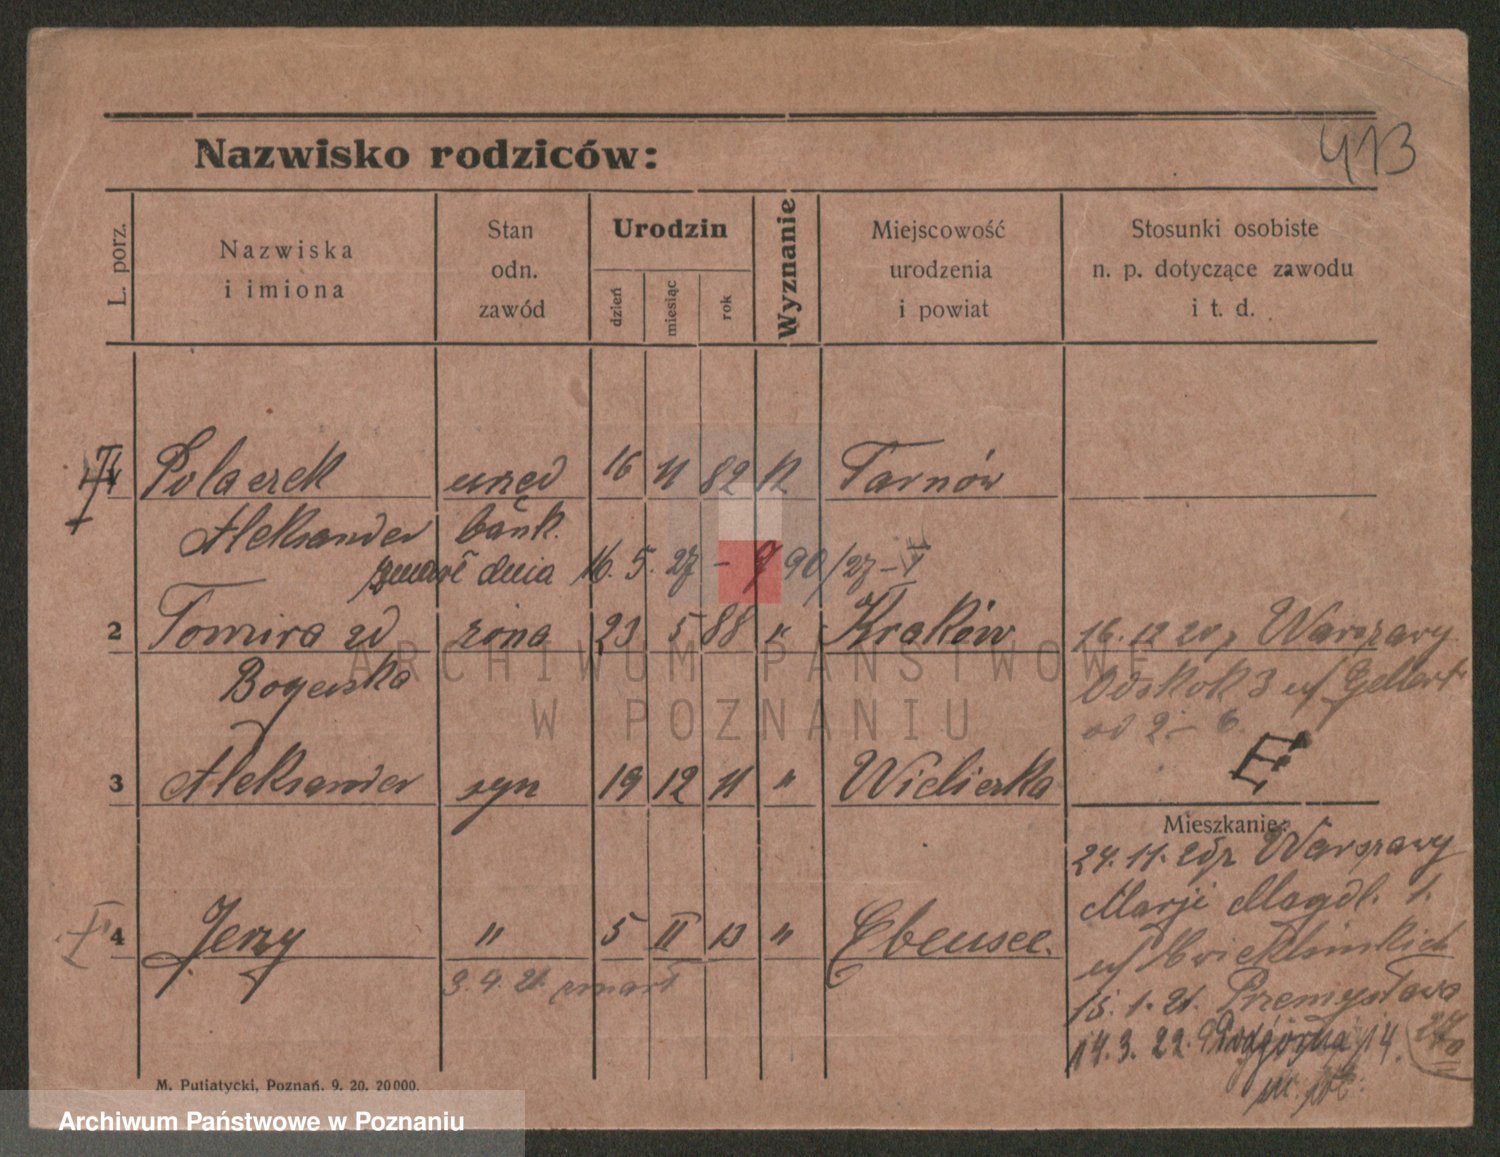 413
Nazwisko rodziców:
L. porz.
Nazwiska i imiona
Stan odn. zawód
Urodzin
dzień
miesiąc
rok
Wyznanie
Miejscowość urodzenia i powiat
Stosunki osobiste n. p. dotyczące zawodu i t. d.
Polaczek urzęd 16 11 82 Tarnów
Aleksander bank.
zmarł dnia 16. 5. 27 - 790/27 -
2 Tomira zd żona 23 5 88 " Kraków 16. 12 20 z Warszawy
Bogerska
od 2 - 6
E
3 Aleksander syn 19 12 11 " Wieliczka
Mieszkanie:
24. 11. 20 z Warszawy
Marji Magdl. 1.
4 Jerzy " 5 II 13 " Ebensee.
3. 4. 21. zmarł
15. 1. 21. Przemysława
14. 3. 22. Podgórna 14.
M. Putiatycki, Poznań. 9. 20. 20000.
ARCHIWUM PAŃSTWOWE
W POZNANIU
Archiwum Państwowe w Poznaniu